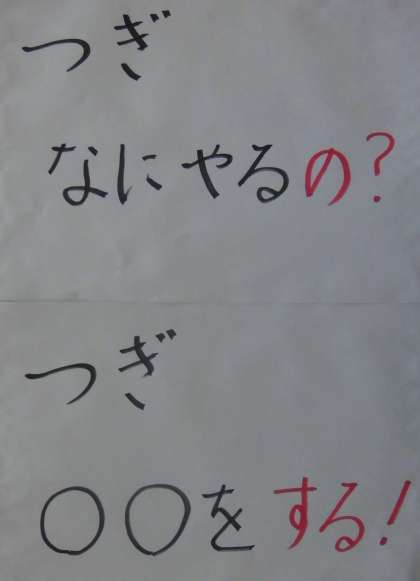 つぎ
なにやるの?
つぎ
○○をする!